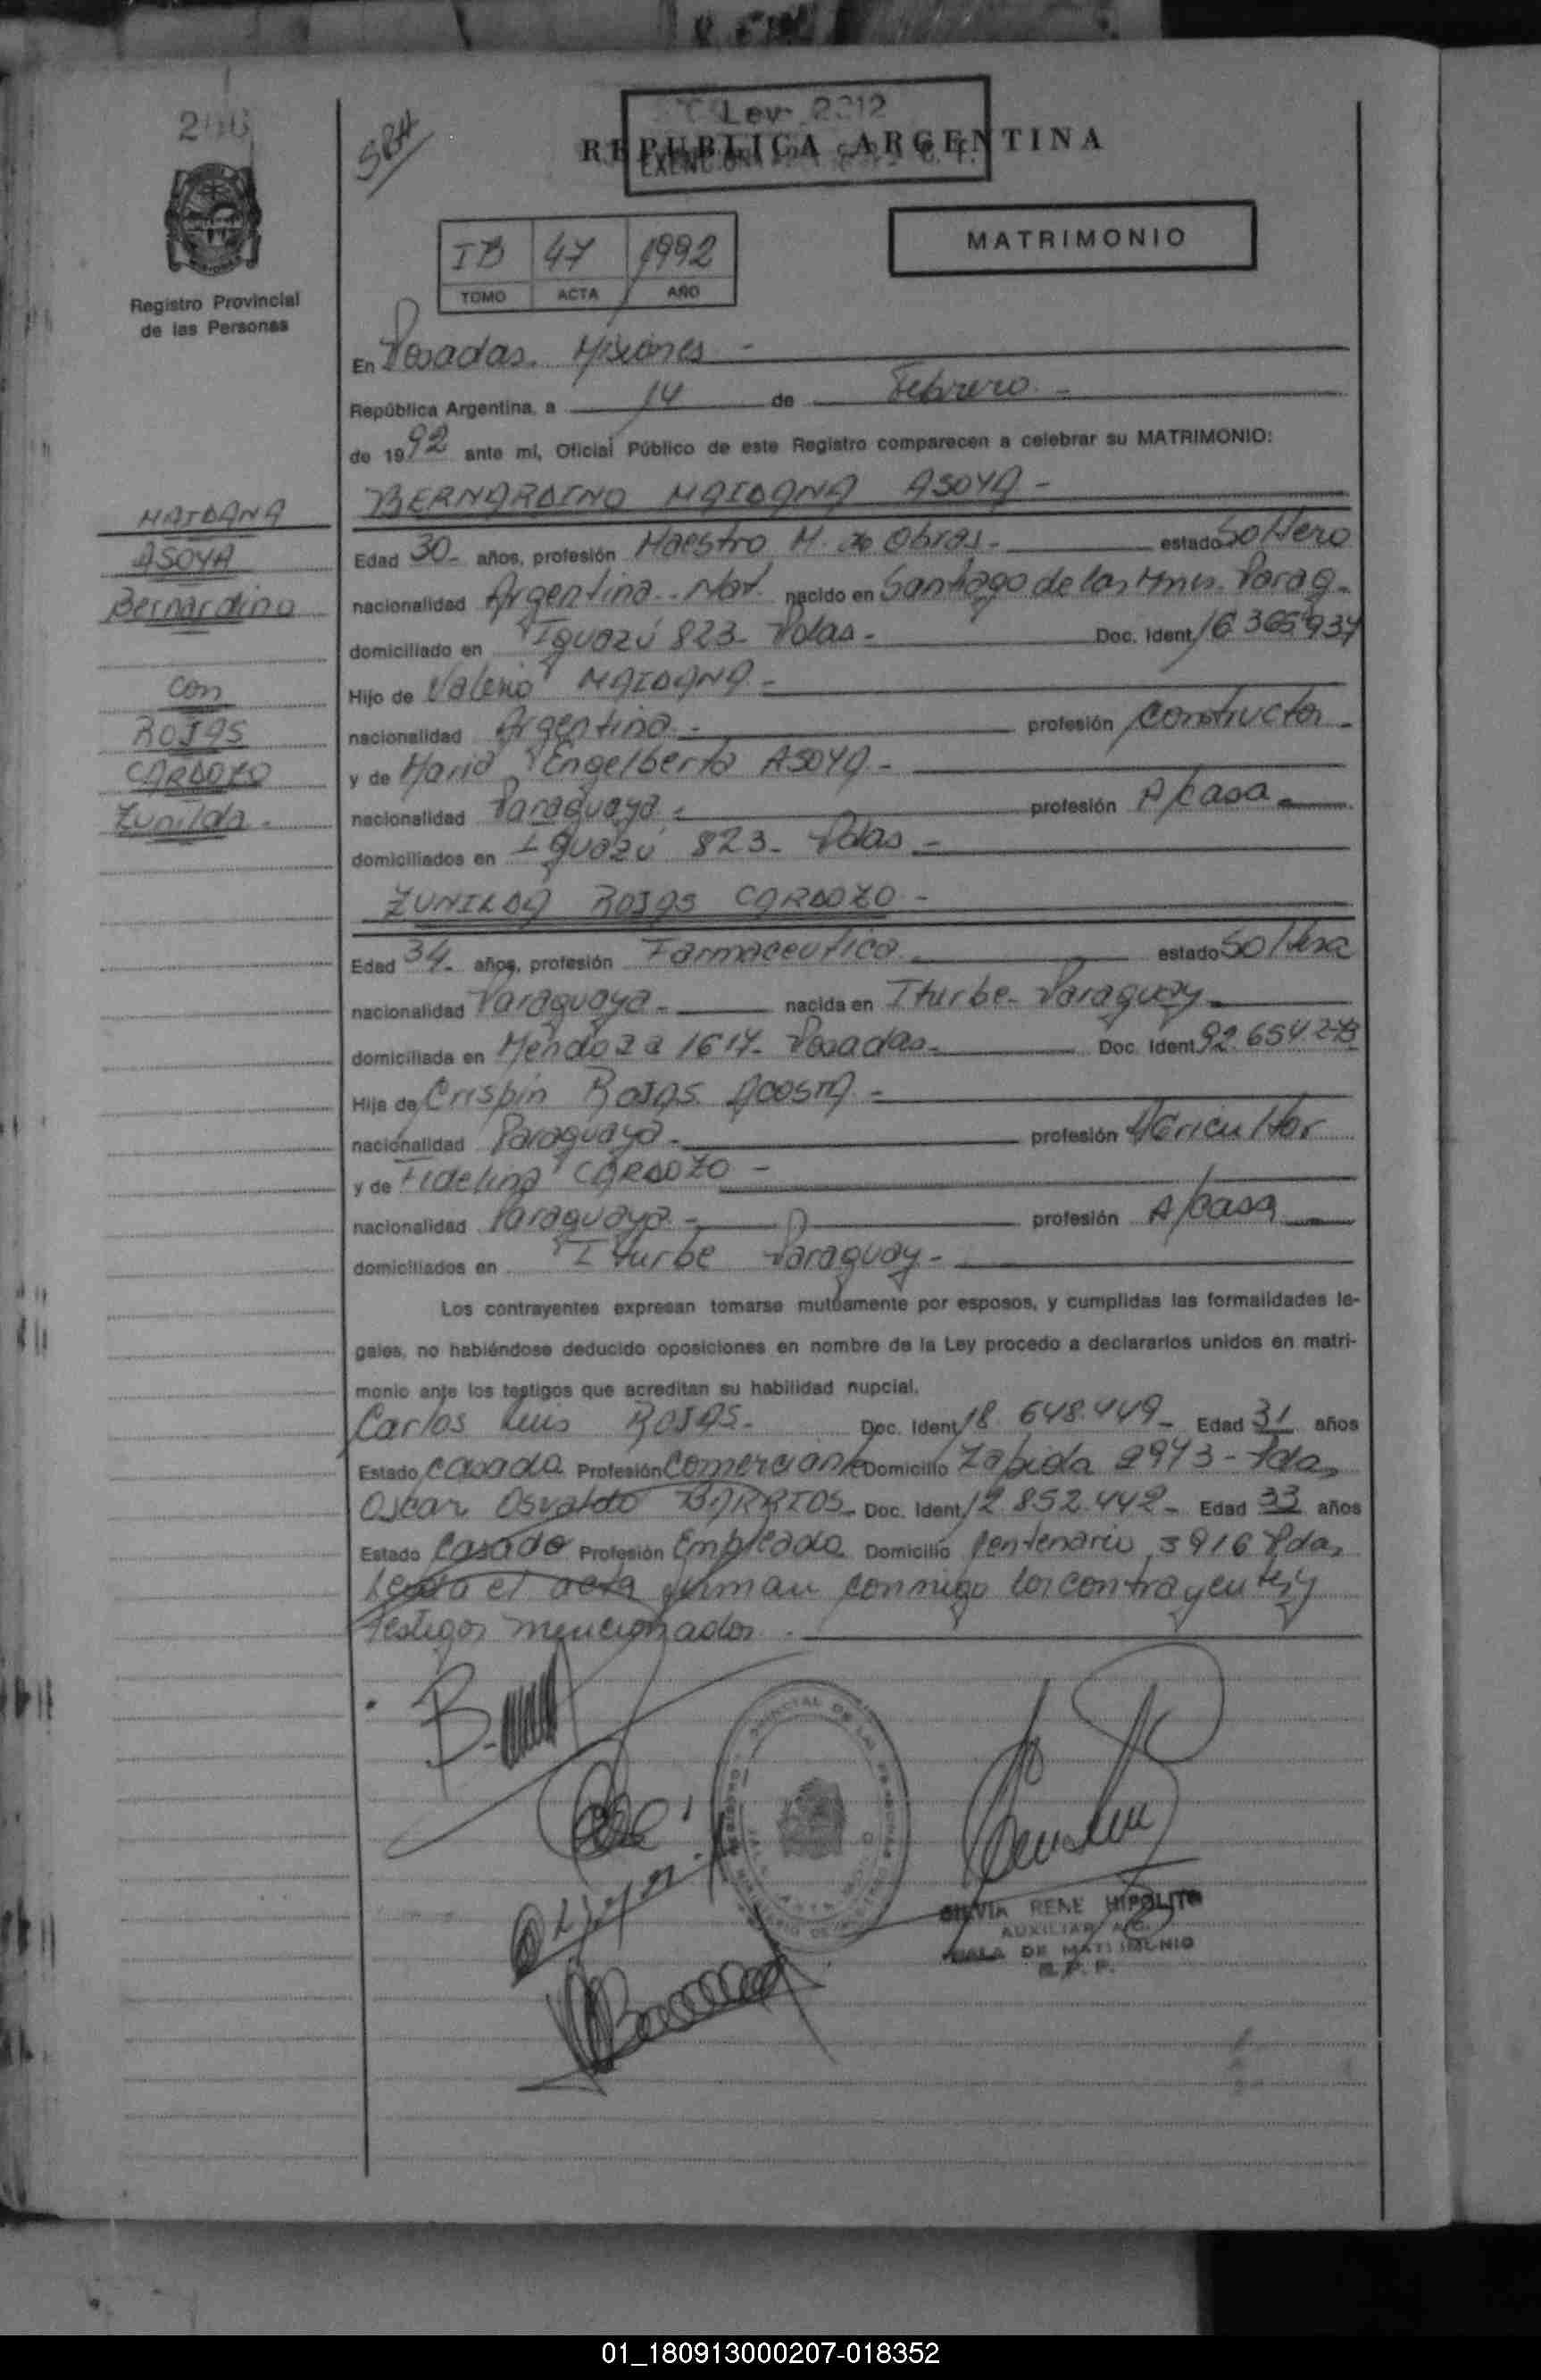 SRH
Ley 2312
REPUBLICA ARGENTINA
MATRIMONIO
IB 47 1992
TOMO ACTA AÑO
Registro Provincial
de las Personas
En Posadas. Misiones -
República Argentina, a 14 de Febrero -
de 1992 ante mi, Oficial Público de este Registro comparecen a celebrar su MATRIMONIO:
BERNARDINO MAIDANA ASOYA -
MAIDANA
ASOYA
Bernardino
con
ROJAS
CARDOZO
Zunilda -
Edad 30- años, profesión Maestro M. de Obras - estado Soltero
nacionalidad Argentina. Nat. nacido en Santiago de las Mnes. Parag -
domiciliado en Iguazú 823- Pdas - Doc. Ident. 16 365 937
Hijo de Valerio MAIDANA -
nacionalidad Argentina - profesión Constructor -
y de Maria Engelberta ASOYA -
nacionalidad Paraguaya - profesión A/casa -
domiciliados en Iguazú 823- Pdas -
ZUNILDA ROJAS CARDOZO -
Edad 34- años, profesión Farmaceutica estado Soltera
nacionalidad Paraguaya - nacida en Iturbe- Paraguay -
domiciliada en Mendoza 1617- Posadas - Doc. Ident. 92.654.273
Hija de Crispín ROJAS ACOSTA -
nacionalidad Paraguaya - profesión Agricultor
y de Fidelina CARDOZO -
nacionalidad Paraguaya - profesión A/casa
domiciliados en Iturbe Paraguay -
Los contrayentes expresan tomarse mutuamente por esposos, y cumplidas las formalidades le-
gales, no habiéndose deducido oposiciones en nombre de la Ley procedo a declararlos unidos en matri-
monio ante los testigos que acreditan su habilidad nupcial.
Carlos Luis ROJAS - Doc. Ident. 18.648.449- Edad 31 años
Estado casado Profesión Comerciante Domicilio Zapiola 2943 - Pdas
Oscar Osvaldo BARRIOS - Doc. Ident. 12.852.442- Edad 33 años
Estado Casado Profesión Empleado Domicilio Centenario 3916 Pdas
Leida el acta firman conmigo los contrayentes y
testigos mencionados. -
SILVIA RENE HIPOLITO
AUXILIAR
SALA DE MATRIMONIO
R. P. P.
01_180913000207-018352